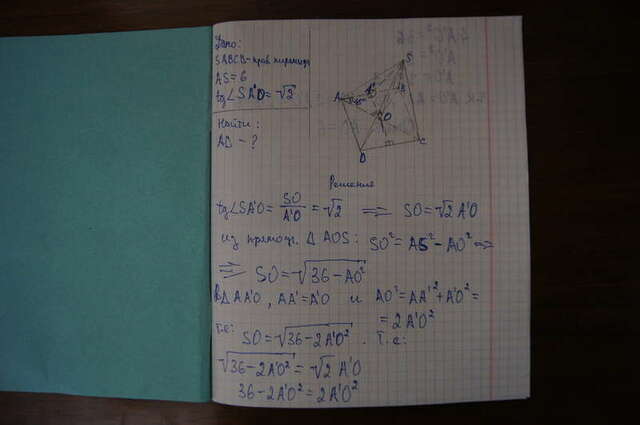 Дано:
SABCD - прав. пирамида
AS = 6
tg∠SA'O = √2
Найти:
AD - ?
S
A
A'
B
O
D
C
Решение
tg∠SA'O = SO/A'O = √2 => SO = √2 A'O
из прямоуг. Δ AOS: SO² = AS² - AO² =>
=> SO = √36 - AO²
В Δ AA'O, AA' = A'O и AO² = AA'² + A'O² =
= 2A'O²
т.е: SO = √36 - 2A'O². Т.е:
√36 - 2A'O² = √2 A'O
36 - 2A'O² = 2A'O²